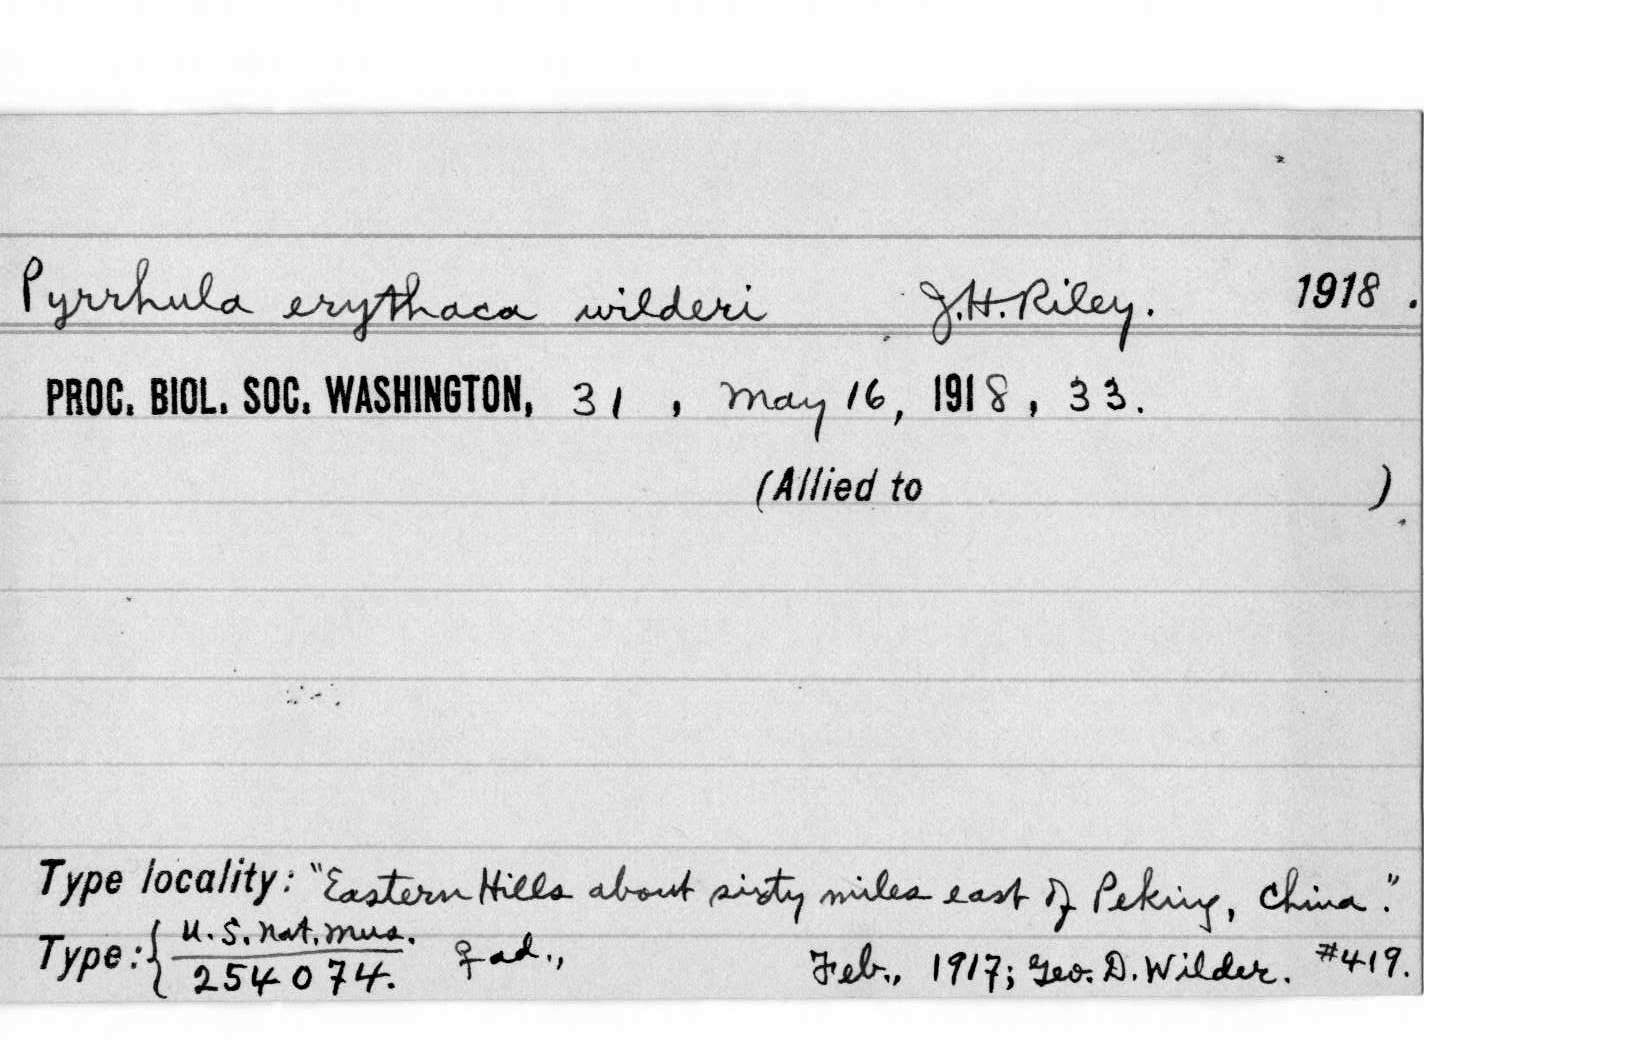 Pyrrhula erythaca wilderi J.H. Riley. 1918.
PROC. BIOL. SOC. WASHINGTON, 31, May 16, 1918, 33.
(Allied to )
Type locality: "Eastern Hills about sixty miles east of Peking, China".
Type: { U.S. Nat. Mus.
254074. ♀ ad., Feb., 1917; Geo. D. Wilder. #419.